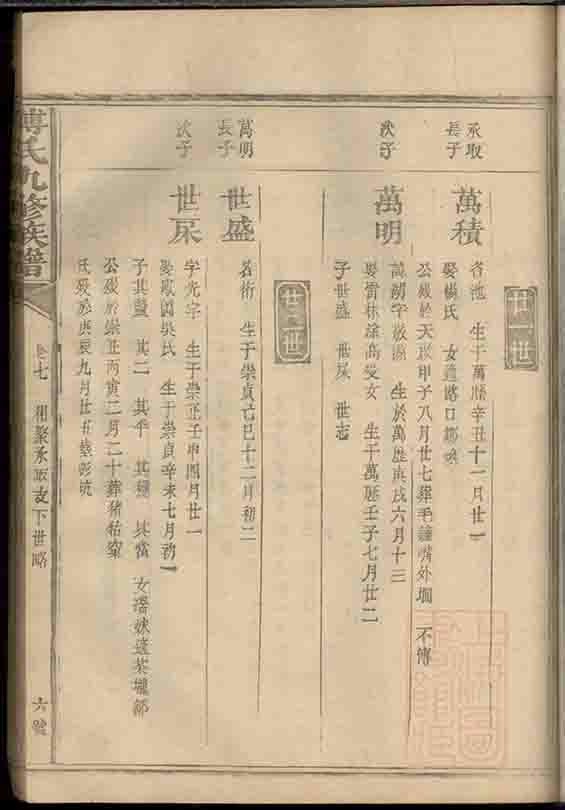 廿一世
承取
長子
萬積
名池 生于萬曆辛丑十一月廿一
娶楊氏 女適路口
公歿於天啟甲子八月廿七葬毛 嘴外塅 不傳
次子
萬明
萬 字啟 生於萬歷庚戌六月十三
娶雷林涂高受女 生于萬歷壬子七月廿二
子世盛 世杘 世志
廿二世
萬明
長子
世盛
名術 生于崇貞己巳十二月初二
次子
世杘
字光宇 生于崇正壬申閏月廿一
娶 吳氏 生于崇貞辛未七月初一
子其 其二 其平 其 其當 女潘妹適茶壠鄒
公歿於崇正丙寅二月二十葬豬牯窠
氏歿於庚辰九月廿五葬 坑
傅氏九修族譜
卷七
承取支下世略
六號